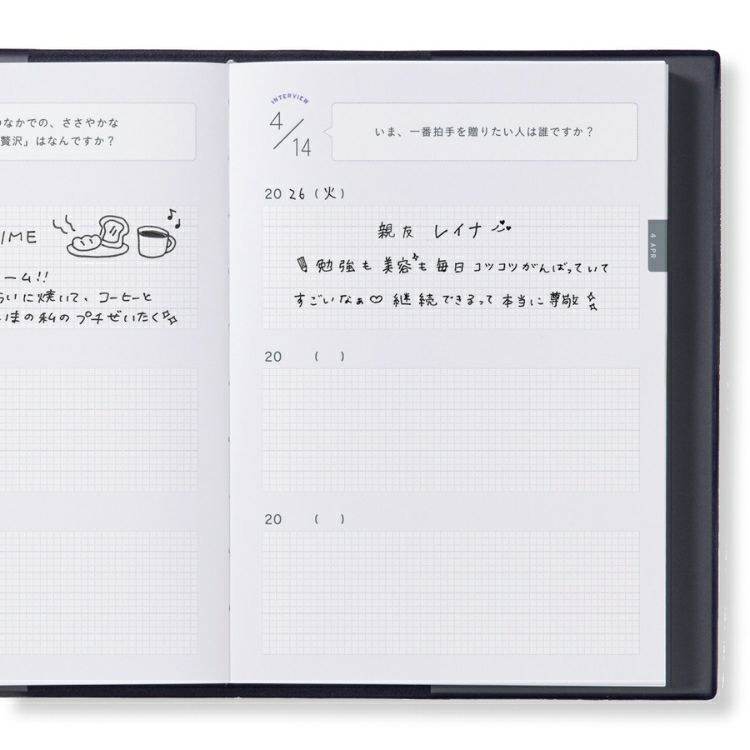 のなかでの、ささやかな
贅沢」はなんですか?
IME
ーム!!
らいに焼いて、コーヒーと
いまの私のプチぜいたく
INTERVIEW
4/14
いま、一番拍手を贈りたい人は誰ですか?
20 26 (火)
親友 レイナ
勉強も美容も毎日コツコツがんばっていて
すごいなぁ♡ 継続できるって本当に尊敬
4 APR
20 ( )
20 ( )